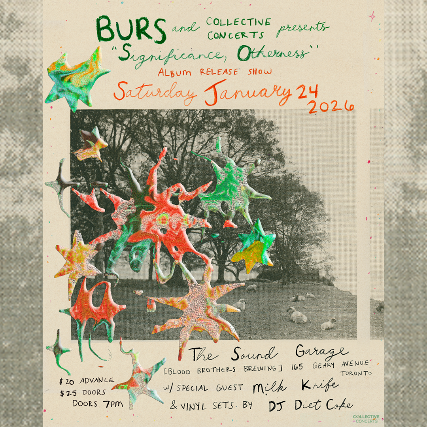 BURS and COLLECTIVE CONCERTS presents
"Significance, Otherness"
ALBUM RELEASE SHOW
Saturday January 24
2026
The Sound Garage
[BLOOD BROTHERS BREWING] 165 GEARY AVENUE
TORONTO
$20 ADVANCE
$25 DOORS
DOORS 7PM
w/ SPECIAL GUEST Milk Knife
& VINYL SETS BY DJ Diet Coke
COLLECTIVE
CONCERTS